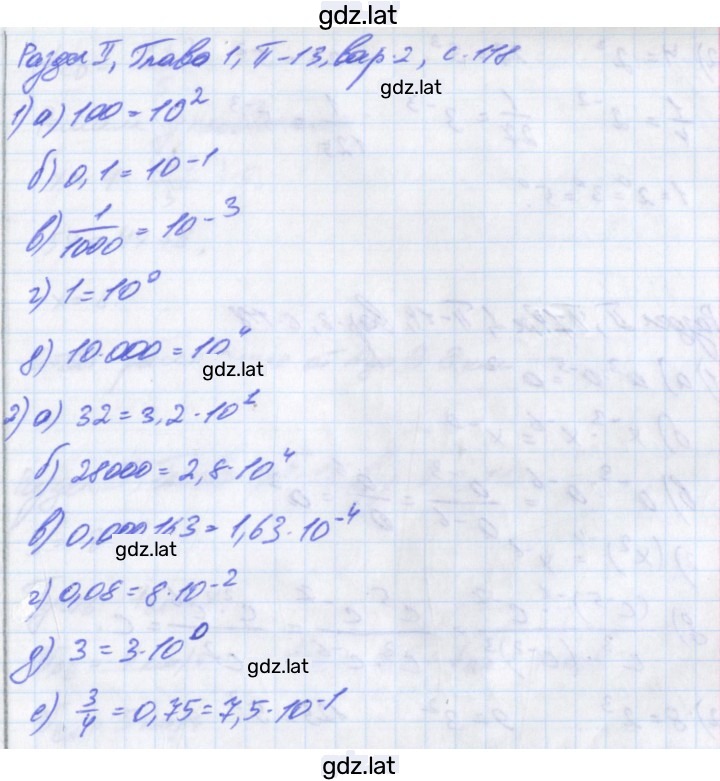 gdz.lat
Раздел II, Глава 1, П-13, вар. 2, с. 118
gdz.lat
1) а) 100 = 10²
б) 0,1 = 10⁻¹
в) 1/1000 = 10⁻³
г) 1 = 10⁰
д) 10.000 = 10⁴
gdz.lat
2) а) 32 = 3,2 · 10¹
б) 28000 = 2,8 · 10⁴
в) 0,000163 = 1,63 · 10⁻⁴
gdz.lat
г) 0,08 = 8 · 10⁻²
д) 3 = 3 · 10⁰
gdz.lat
е) 3/4 = 0,75 = 7,5 · 10⁻¹
gdz.lat